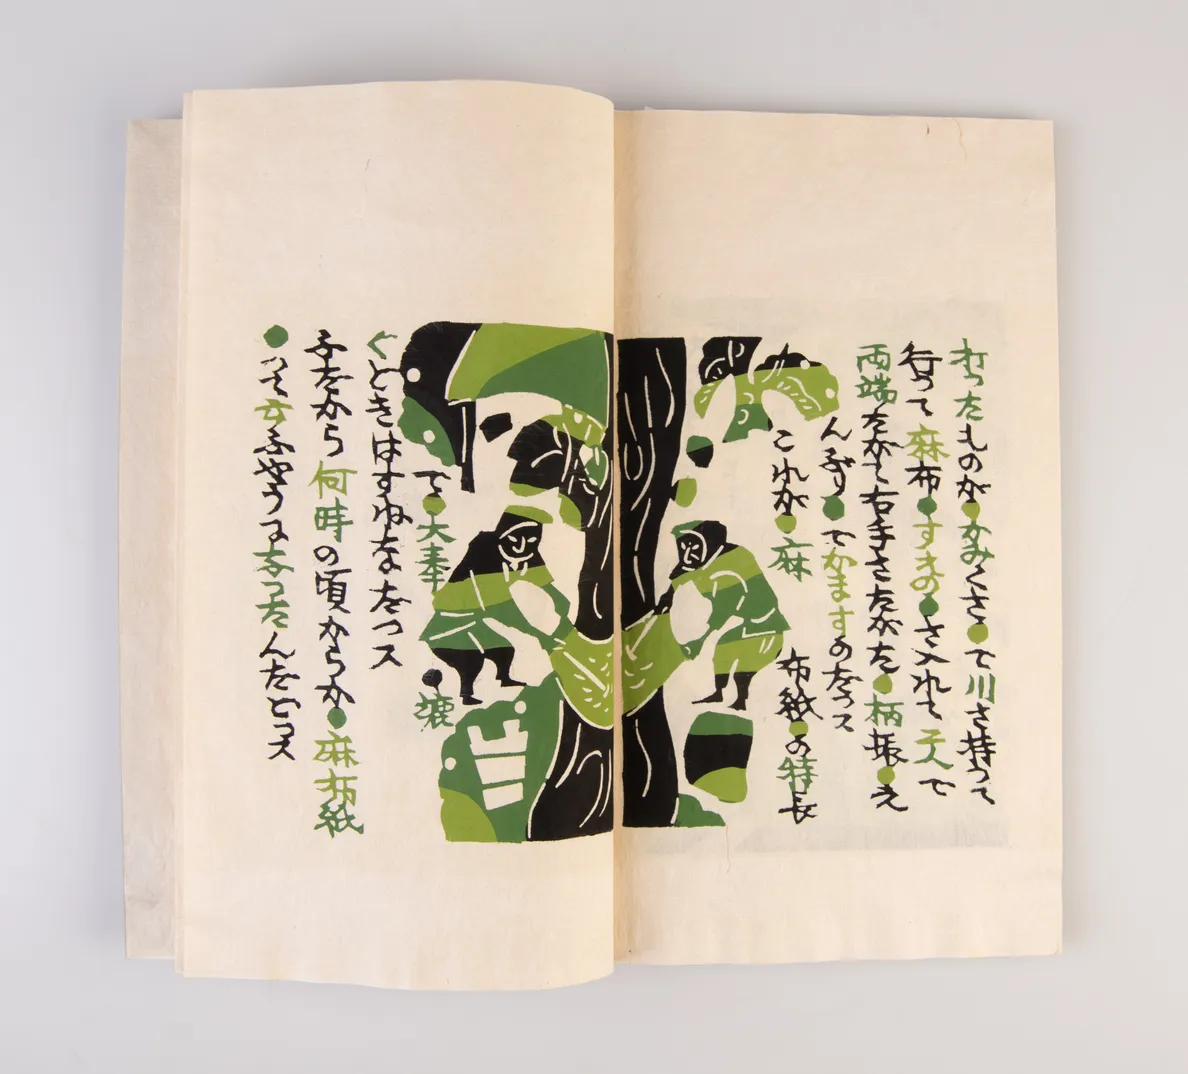 打ったものが●かみくさ●で川さ持って
行って麻布●すきの●さ入れて二人で
両端たがて右手さたがた●柄振●え
んぶり●でかますのだっス
これが●麻布紙●の特長
で●大奉●漉
ぐときはすねなだっス
んだから何時の頃からか●麻布紙
●って云ふやうになったんだどっス